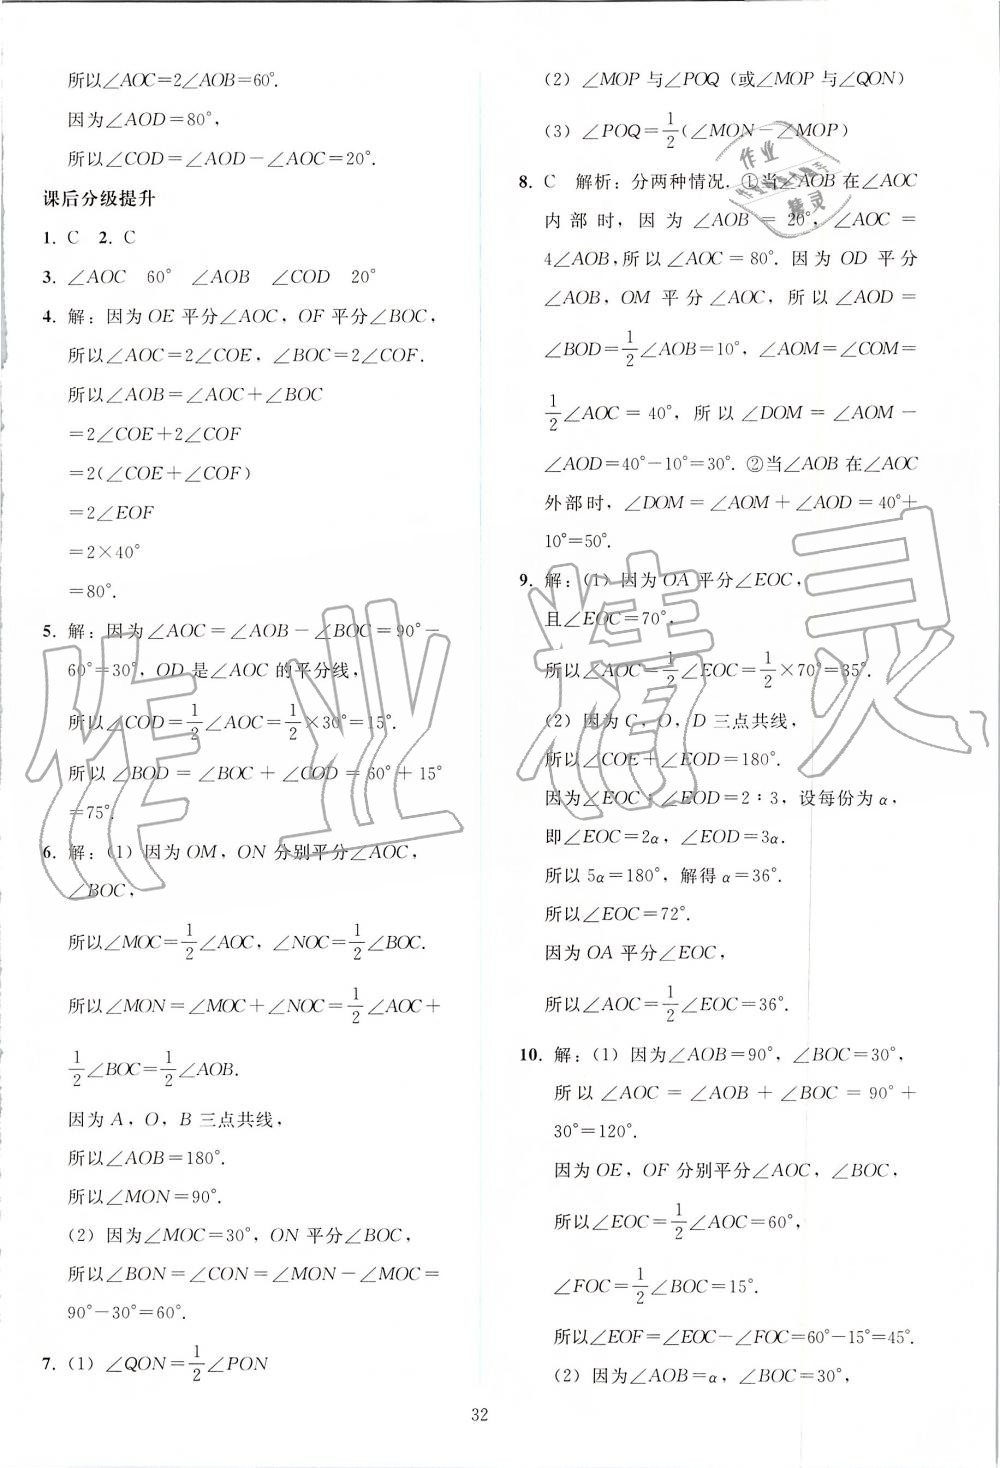 所以∠AOC=2∠AOB=60°.
因为∠AOD=80°,
所以∠COD=∠AOD-∠AOC=20°.
课后分级提升
1. C  2. C
3. ∠AOC  60°  ∠AOB  ∠COD  20°
4. 解:因为OE平分∠AOC,OF平分∠BOC,
所以∠AOC=2∠COE,∠BOC=2∠COF.
所以∠AOB=∠AOC+∠BOC
=2∠COE+2∠COF
=2(∠COE+∠COF)
=2∠EOF
=2×40°
=80°.
5. 解:因为∠AOC=∠AOB-∠BOC=90°-
60°=30°,OD是∠AOC的平分线,
所以∠COD=1/2∠AOC=1/2×30°=15°.
所以∠BOD=∠BOC+∠COD=60°+15°
=75°.
6. 解:(1)因为OM,ON分别平分∠AOC,
∠BOC,
所以∠MOC=1/2∠AOC,∠NOC=1/2∠BOC.
所以∠MON=∠MOC+∠NOC=1/2∠AOC+
1/2∠BOC=1/2∠AOB.
因为A,O,B三点共线,
所以∠AOB=180°.
所以∠MON=90°.
(2)因为∠MOC=30°,ON平分∠BOC,
所以∠BON=∠CON=∠MON-∠MOC=
90°-30°=60°.
7. (1)∠QON=1/2∠PON
(2)∠MOP与∠POQ(或∠MOP与∠QON)
(3)∠POQ=1/2(∠MON-∠MOP)
8. C  解析:分两种情况.①当∠AOB在∠AOC
内部时,因为∠AOB=20°,∠AOC=
4∠AOB,所以∠AOC=80°.因为OD平分
∠AOB,OM平分∠AOC,所以∠AOD=
∠BOD=1/2∠AOB=10°,∠AOM=∠COM=
1/2∠AOC=40°,所以∠DOM=∠AOM-
∠AOD=40°-10°=30°.②当∠AOB在∠AOC
外部时,∠DOM=∠AOM+∠AOD=40°+
10°=50°.
9. 解:(1)因为OA平分∠EOC,
且∠EOC=70°,
所以∠AOC=1/2∠EOC=1/2×70°=35°.
(2)因为C,O,D三点共线,
所以∠COE+∠EOD=180°.
因为∠EOC:∠EOD=2:3,设每份为α,
即∠EOC=2α,∠EOD=3α.
所以5α=180°,解得α=36°.
所以∠EOC=72°.
因为OA平分∠EOC,
所以∠AOC=1/2∠EOC=36°.
10. 解:(1)因为∠AOB=90°,∠BOC=30°,
所以∠AOC=∠AOB+∠BOC=90°+
30°=120°.
因为OE,OF分别平分∠AOC,∠BOC,
所以∠EOC=1/2∠AOC=60°,
∠FOC=1/2∠BOC=15°.
所以∠EOF=∠EOC-∠FOC=60°-15°=45°.
(2)因为∠AOB=α,∠BOC=30°,
32
作业精灵
作业
精灵